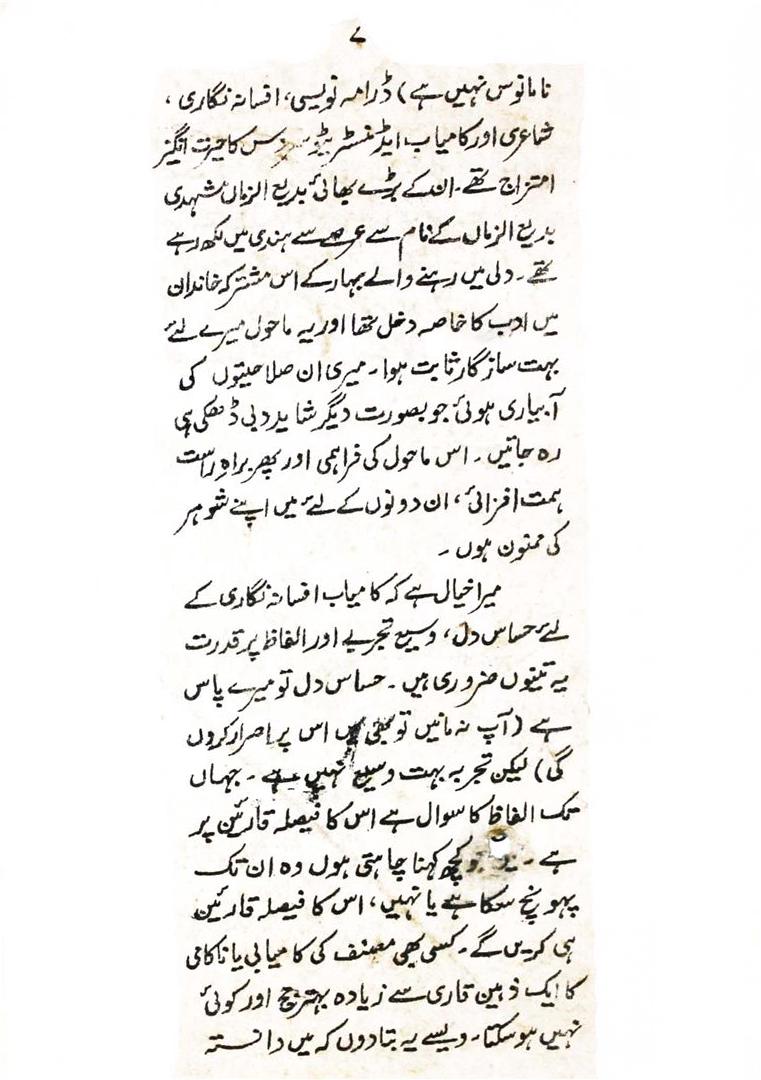 ۷
نامانوس نہیں ہے) ڈرامہ نویسی، افسانہ نگاری،
شاعری اور کامیاب ایڈمنسٹریٹو کا حیرت انگیز
امتزاج تھے۔ ان کے بڑے بھائی بدیع الزماں مشہدی
بدیع الزماں کے نام سے عرصے سے ہندی میں لکھ رہے
تھے۔ دلی میں رہنے والے بہار کے اس مشترکہ خاندان
میں ادب کا خاصہ دخل تھا اور یہ ماحول میرے لئے
بہت سازگار ثابت ہوا۔ میری ان صلاحیتوں کی
آبیاری ہوئی جو بصورت دیگر شاید دبی ڈھکی ہی
رہ جاتیں۔ اس ماحول کی فراہمی اور پھر براہ راست
ہمت افزائی، ان دونوں کے لئے میں اپنے شوہر
کی ممنون ہوں۔
میرا خیال ہے کہ کامیاب افسانہ نگاری کے
لئے حساس دل، وسیع تجربے اور الفاظ پر قدرت
یہ تینوں ضروری ہیں۔ حساس دل تو میرے پاس
ہے (آپ نہ مانیں تو بھی میں اس پر اصرار کروں
گی) لیکن تجربہ بہت وسیع نہیں ہے۔ جہاں
تک الفاظ کا سوال ہے اس کا فیصلہ قارئین پر
ہے۔ جو کچھ کہنا چاہتی ہوں وہ ان تک
پہونچ سکا ہے یا نہیں، اس کا فیصلہ قارئین
ہی کریں گے۔ کسی بھی مصنف کی کامیابی یا ناکامی
کا ایک ذہین قاری سے زیادہ بہتر جج اور کوئی
نہیں ہو سکتا۔ ویسے یہ بتا دوں کہ میں دانستہ